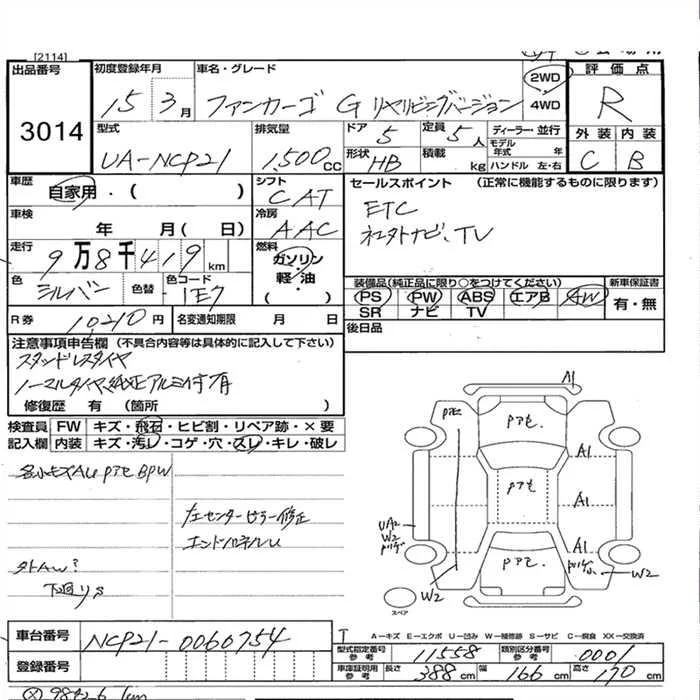 [2114]
出品番号 3014
初度登録年月 15 3月
車名・グレード ファンカーゴ G リヤリビングバージョン
2WD
4WD
評価点 R
外装 内装
C B
型式 UA-NCP21
排気量 1,500cc
ドア 5
定員 5人
ディーラー・並行
モデル年式 年
形状 HB
積載 kg
ハンドル 左・右
車歴 自家用・( )
シフト CAT
車検 年 月( 日)
冷房 AAC
走行 9万8千419km
燃料 ガソリン
軽・油
・( )
色 シルバー 色替 色コード 1E7
R券 10,210円 名変通知期限 月 日
セールスポイント (正常に機能するものに限ります)
ETC
社外ナビ、TV
装備品(純正品に限り○をつけてください) 新車保証書
PS PW ABS エアB AW
SR ナビ TV
有・無
後日品
注意事項申告欄(不具合内容等は具体的に記入して下さい)
スタッドレスタイヤ
ノーマルタイヤ純正アルミ付有
修復歴 有 (箇所 )
検査員 FW キズ・飛石・ヒビ割・リペア跡・×要
記入欄 内装 キズ・汚レ・コゲ・穴・スレ・キレ・破レ
各小キズAU Pアモ BPW
左センターピラー修正
エンドパネルU
外AW?
下廻りS
A1
Pアモ
Pアモ.
A1
Pアモ
A1
UA2
W2
A1
Pアモ
W2
W2
スペア
車台番号 NCP21-0060754
登録番号
A－キズ E－エクボ U－凹み W－補修跡 S－サビ C－腐食 XX－交換済
型式指定番号 参考 11558 類別区分番号 参考 0001
車庫証明用 参考 長さ 388cm 幅 166cm 高さ 170cm